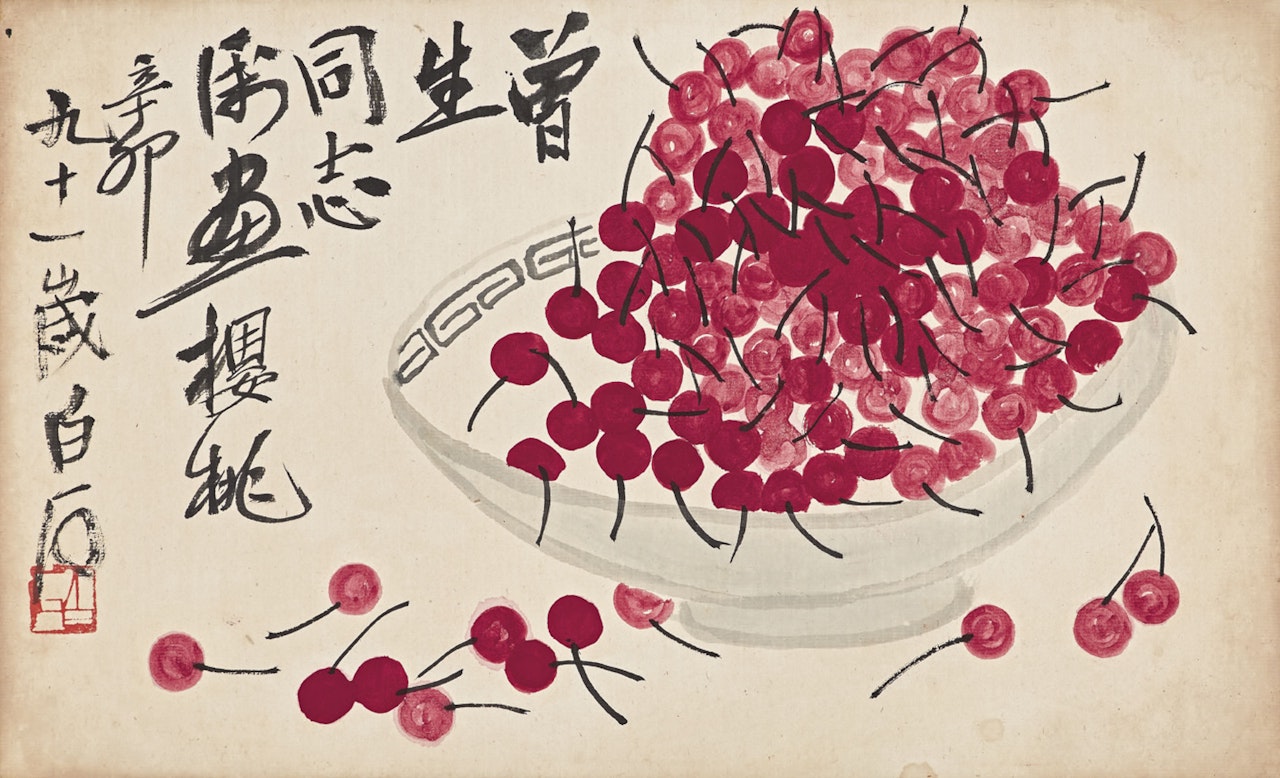 曾
生
同志
屬畫櫻桃
辛卯
九十一歲白石